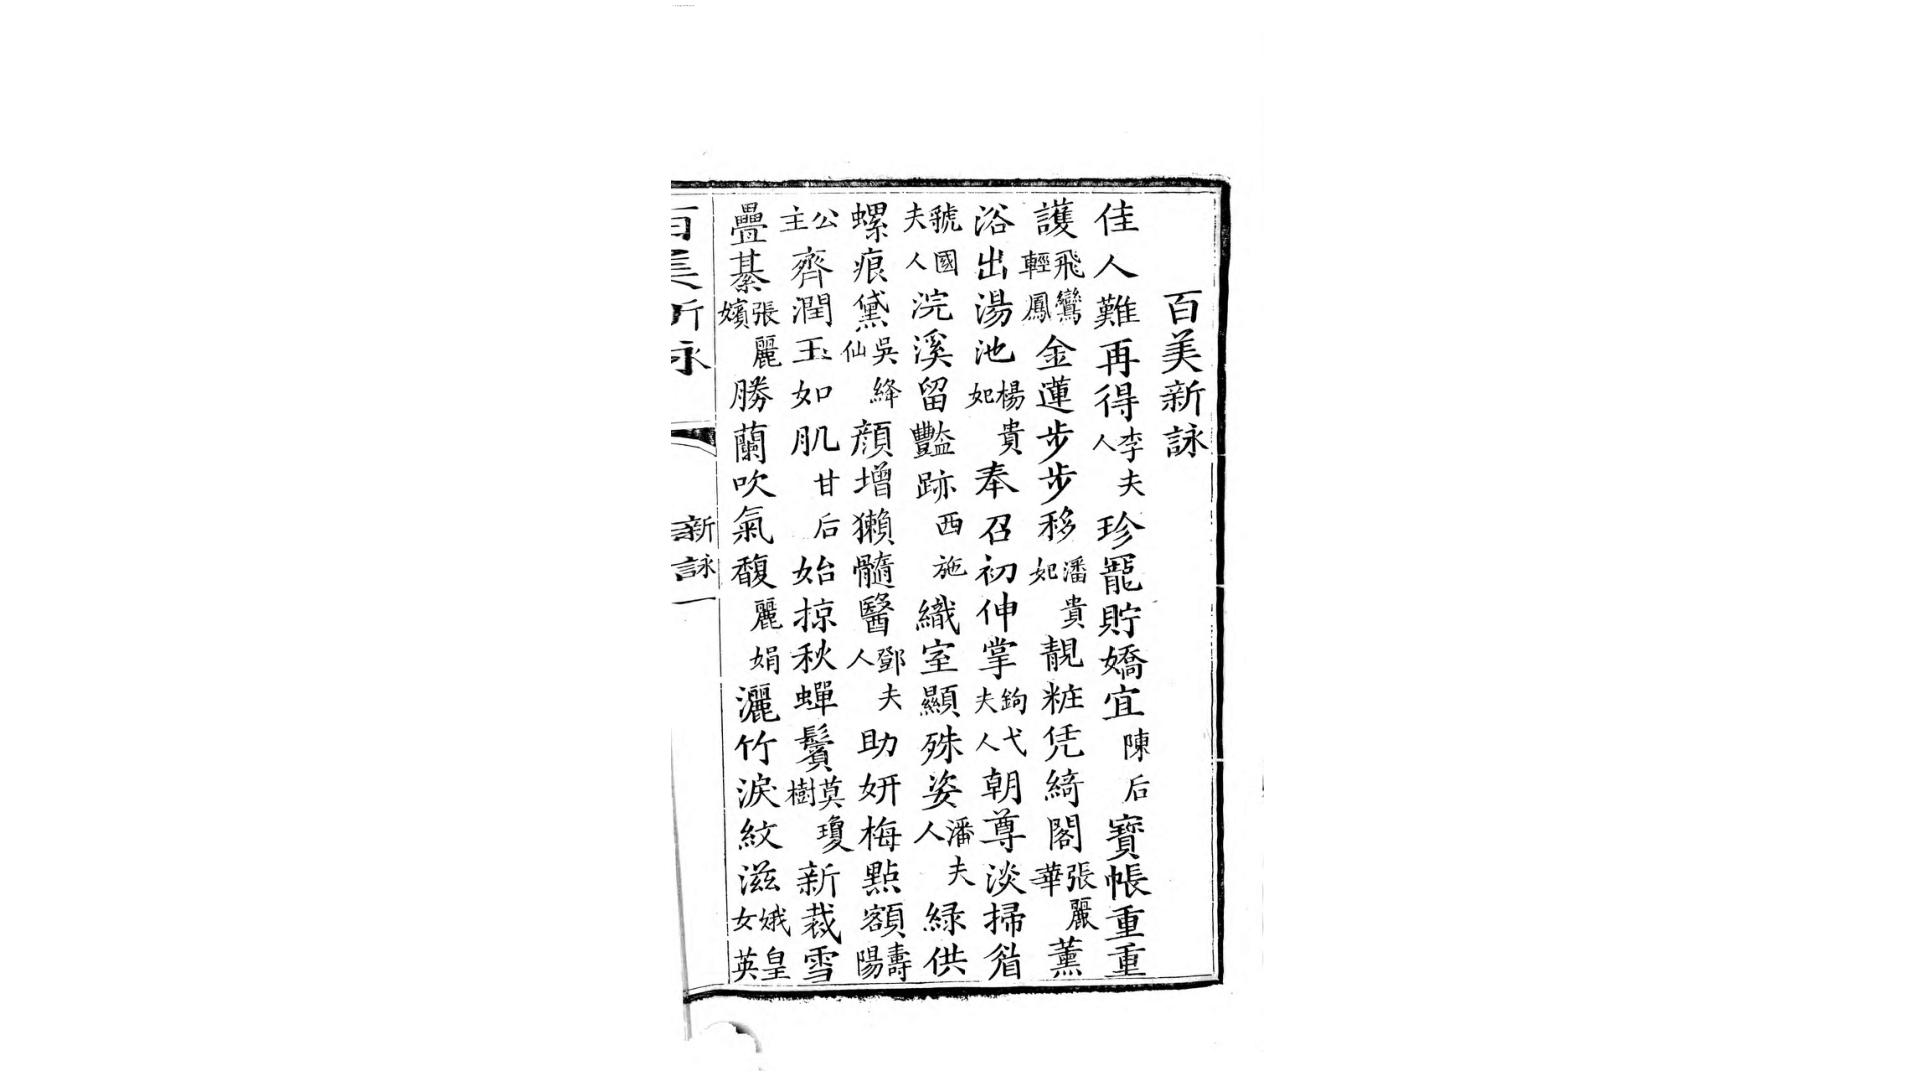 百美新詠
佳人難再得李夫人珍寵貯嬌宜陳后寶帳重重
護飛鸞輕鳳金蓮步步移潘貴妃靚粧凭綺閣張麗華薰
浴出湯池楊貴妃奉召初伸掌鉤弋夫人朝尊淡掃眉
虢國夫人浣溪留豔跡西施織室顯殊姿潘夫人緑供
螺痕黛吳絳仙顏增獺髓醫鄧夫人助妍梅點額壽陽
公主齊潤玉如肌甘后始掠秋蟬鬢莫瓊樹新裁雪
疊綦張麗嬪勝蘭吹氣馥麗娟灑竹淚紋滋娥皇女英
百美新詠
新詠一